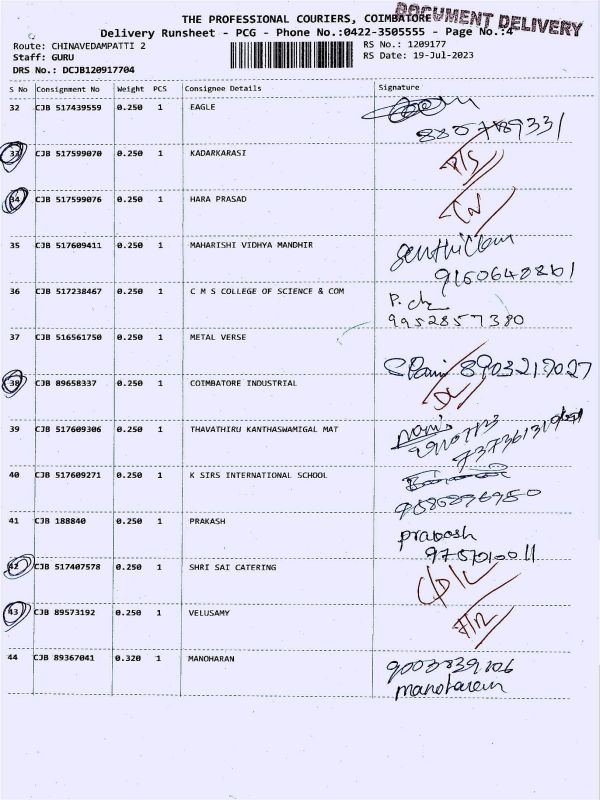 THE PROFESSIONAL COURIERS, COIMBATORE
DOCUMENT DELIVERY
Delivery Runsheet - PCG - Phone No.:0422-3505555 - Page No.:4
Route: CHINAVEDAMPATTI 2
RS No.: 1209177
Staff: GURU
RS Date: 19-Jul-2023
DRS No.: DCJB120917704
S No Consignment No Weight PCS Consignee Details Signature
32 CJB 517439559 0.250 1 EAGLE
33 CJB 517599070 0.250 1 KADARKARASI
34 CJB 517599076 0.250 1 HARA PRASAD
35 CJB 517609411 0.250 1 MAHARISHI VIDHYA MANDHIR
36 CJB 517238467 0.250 1 C M S COLLEGE OF SCIENCE & COM
9952857380
37 CJB 516561750 0.250 1 METAL VERSE
38 CJB 89658337 0.250 1 COIMBATORE INDUSTRIAL
39 CJB 517609306 0.250 1 THAVATHIRU KANTHASWAMIGAL MAT
40 CJB 517609271 0.250 1 K SIRS INTERNATIONAL SCHOOL
41 CJB 188840 0.250 1 PRAKASH
42 CJB 517407578 0.250 1 SHRI SAI CATERING
43 CJB 89573192 0.250 1 VELUSAMY
44 CJB 89367041 0.320 1 MANOHARAN
9003839106